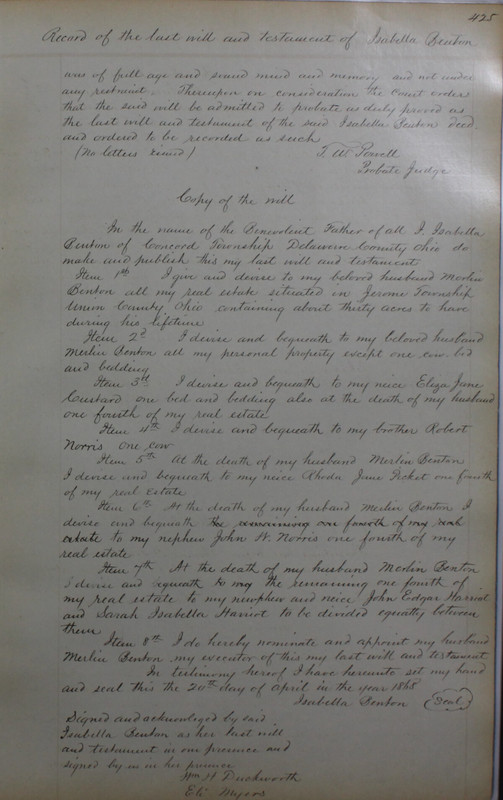 425
Record of the last will and testament of Isabella Benton
was of full age and sound mind and memory and not under
any restraint. Thereupon on consideration the Court orders
that the said will be admitted to probate as duly proved as
the last will and testament of the said Isabella Benton decd
and ordered to be recorded as such
(No letters issued) T. W. Powell
Probate Judge
Copy of the will
In the name of the Benevolent Father of all I, Isabella
Benton of Concord Township Delaware County Ohio do
make and publish this my last will and testament
Item 1st I give and devise to my beloved husband Merlin
Benton all my real estate situated in Jerome Township
Union County Ohio containing about thirty acres to have
during his lifetime
Item 2d I devise and bequeath to my beloved husband
Merlin Benton all my personal property except one cow bed
and bedding
Item 3rd I devise and bequeath to my neice Eliza Jane
Custard one bed and bedding also at the death of my husband
one fourth of my real estate
Item 4th I devise and bequeath to my brother Robert
Norris one cow
Item 5th At the death of my husband Merlin Benton
I devise and bequeath to my neice Rhoda Jane one fourth
of my real Estate
Item 6th At the death of my husband Merlin Benton I
devise and bequeath the remaining one fourth of my real
estate to my nephew John W. Norris one fourth of my
real estate
Item 7th At the death of my husband Merlin Benton
I devise and bequeath to my the remaining one fourth of
my real estate to my newphew and neice John Edgar Harriot
and Sarah Isabella Harriot to be divided equally between
them
Item 8th I do hereby nominate and appoint my husband
Merlin Benton my executor of this my last will and testament
In testimony hereof I have hereunto set my hand
and seal this the 20th day of April in the year 1868
Isabella Benton Seal
Signed and acknowledged by said
Isabella Benton as her last will
and testament in our presence and
signed by us in her presence
Wm H Duckworth
Eli Myers